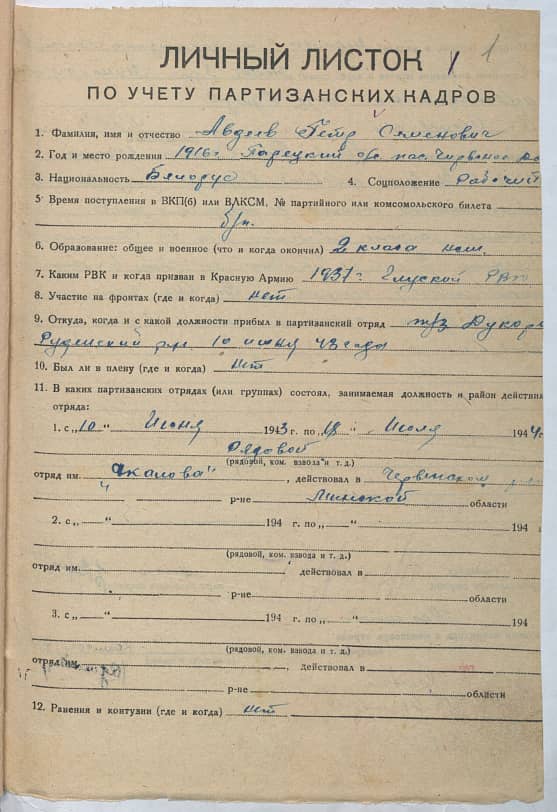 1
ЛИЧНЫЙ ЛИСТОК
ПО УЧЕТУ ПАРТИЗАНСКИХ КАДРОВ
1. Фамилия, имя и отчество Авдеев Петр Семенович
2. Год и место рождения 1916 г.
3. Национальность Белорус 4. Соцположение Рабочий
5. Время поступления в ВКП(б) или ВЛКСМ, № партийного или комсомольского билета
б/п.
6. Образование: общее и военное (что и когда окончил) 2 класса
7. Каким РВК и когда призван в Красную Армию 1937 г. Глуской РВК
8. Участие на фронтах (где и когда) нет
9. Откуда, когда и с какой должности прибыл в партизанский отряд
10 июня 43 года
10. Был ли в плену (где и когда) нет
11. В каких партизанских отрядах (или группах) состоял, занимаемая должность и район действия
отряда:
1. с „10" Июня 1943 г. по „18" Июля 194
Рядовой
(рядовой, ком. взвода и т. д.)
отряд им. „Чкалова" , действовал в Червенском
р-не Минской области
2. с „ " 194 г. по „ " 194
(рядовой, ком. взвода и т. д.)
отряд им. , действовал в
р-не области
3. с „ " 194 г. по „ " 194
(рядовой, ком. взвода и т. д.)
отряд им. , действовал в
р-не области
12. Ранения и контузии (где и когда) нет